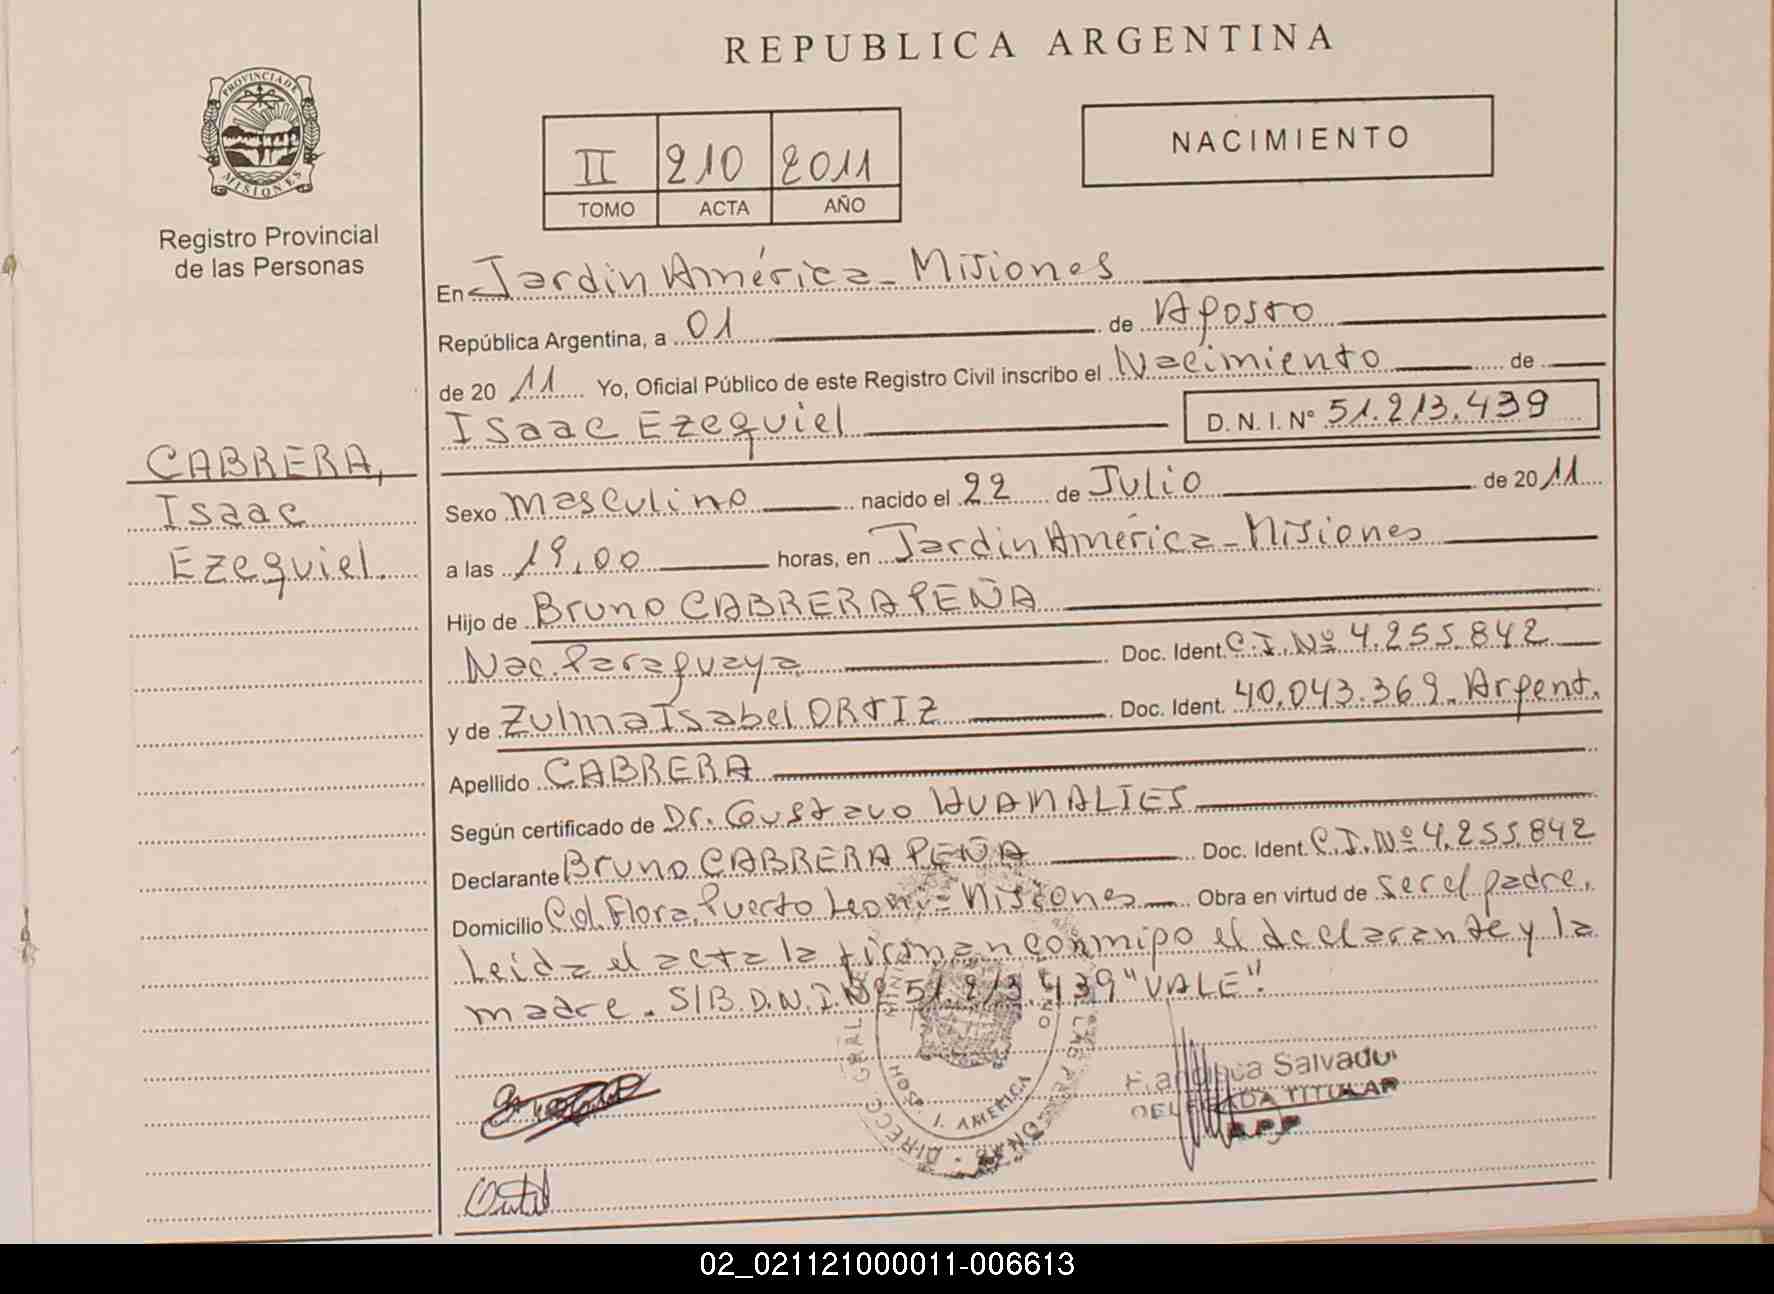 REPUBLICA ARGENTINA
PROVINCIA DE
MISIONES
Registro Provincial
de las Personas
II 210 2011
TOMO ACTA AÑO
NACIMIENTO
En Jardin América - Misiones
República Argentina, a 01 de Agosto
de 20 11 Yo, Oficial Público de este Registro Civil inscribo el Nacimiento de
Isaac Ezequiel D. N. I. N° 51.213.439
CABRERA,
Isaac
Ezequiel.
Sexo Masculino nacido el 22 de Julio de 20 11
a las 19,00 horas, en Jardin América - Misiones
Hijo de Bruno CABRERA PEÑA
Nac. Paraguaya Doc. Ident. C.I. Nº 4.255.842
y de Zulma Isabel ORTIZ Doc. Ident. 40.043.369 - Argent.
Apellido CABRERA
Según certificado de Dr. Gustavo HUAMALIES
Declarante Bruno CABRERA PEÑA Doc. Ident. C.I. Nº 4.255.842
Domicilio Col. Flora, Puerto Leoni - Misiones Obra en virtud de ser el padre.
Leida el acta la firman conmigo el declarante y la
madre. S/B. D.N.I. Nº 51.213.439 "VALE".
J. AMERICA
Salvador
DELEGADA TITULAR
R.P.P
02_021121000011-006613